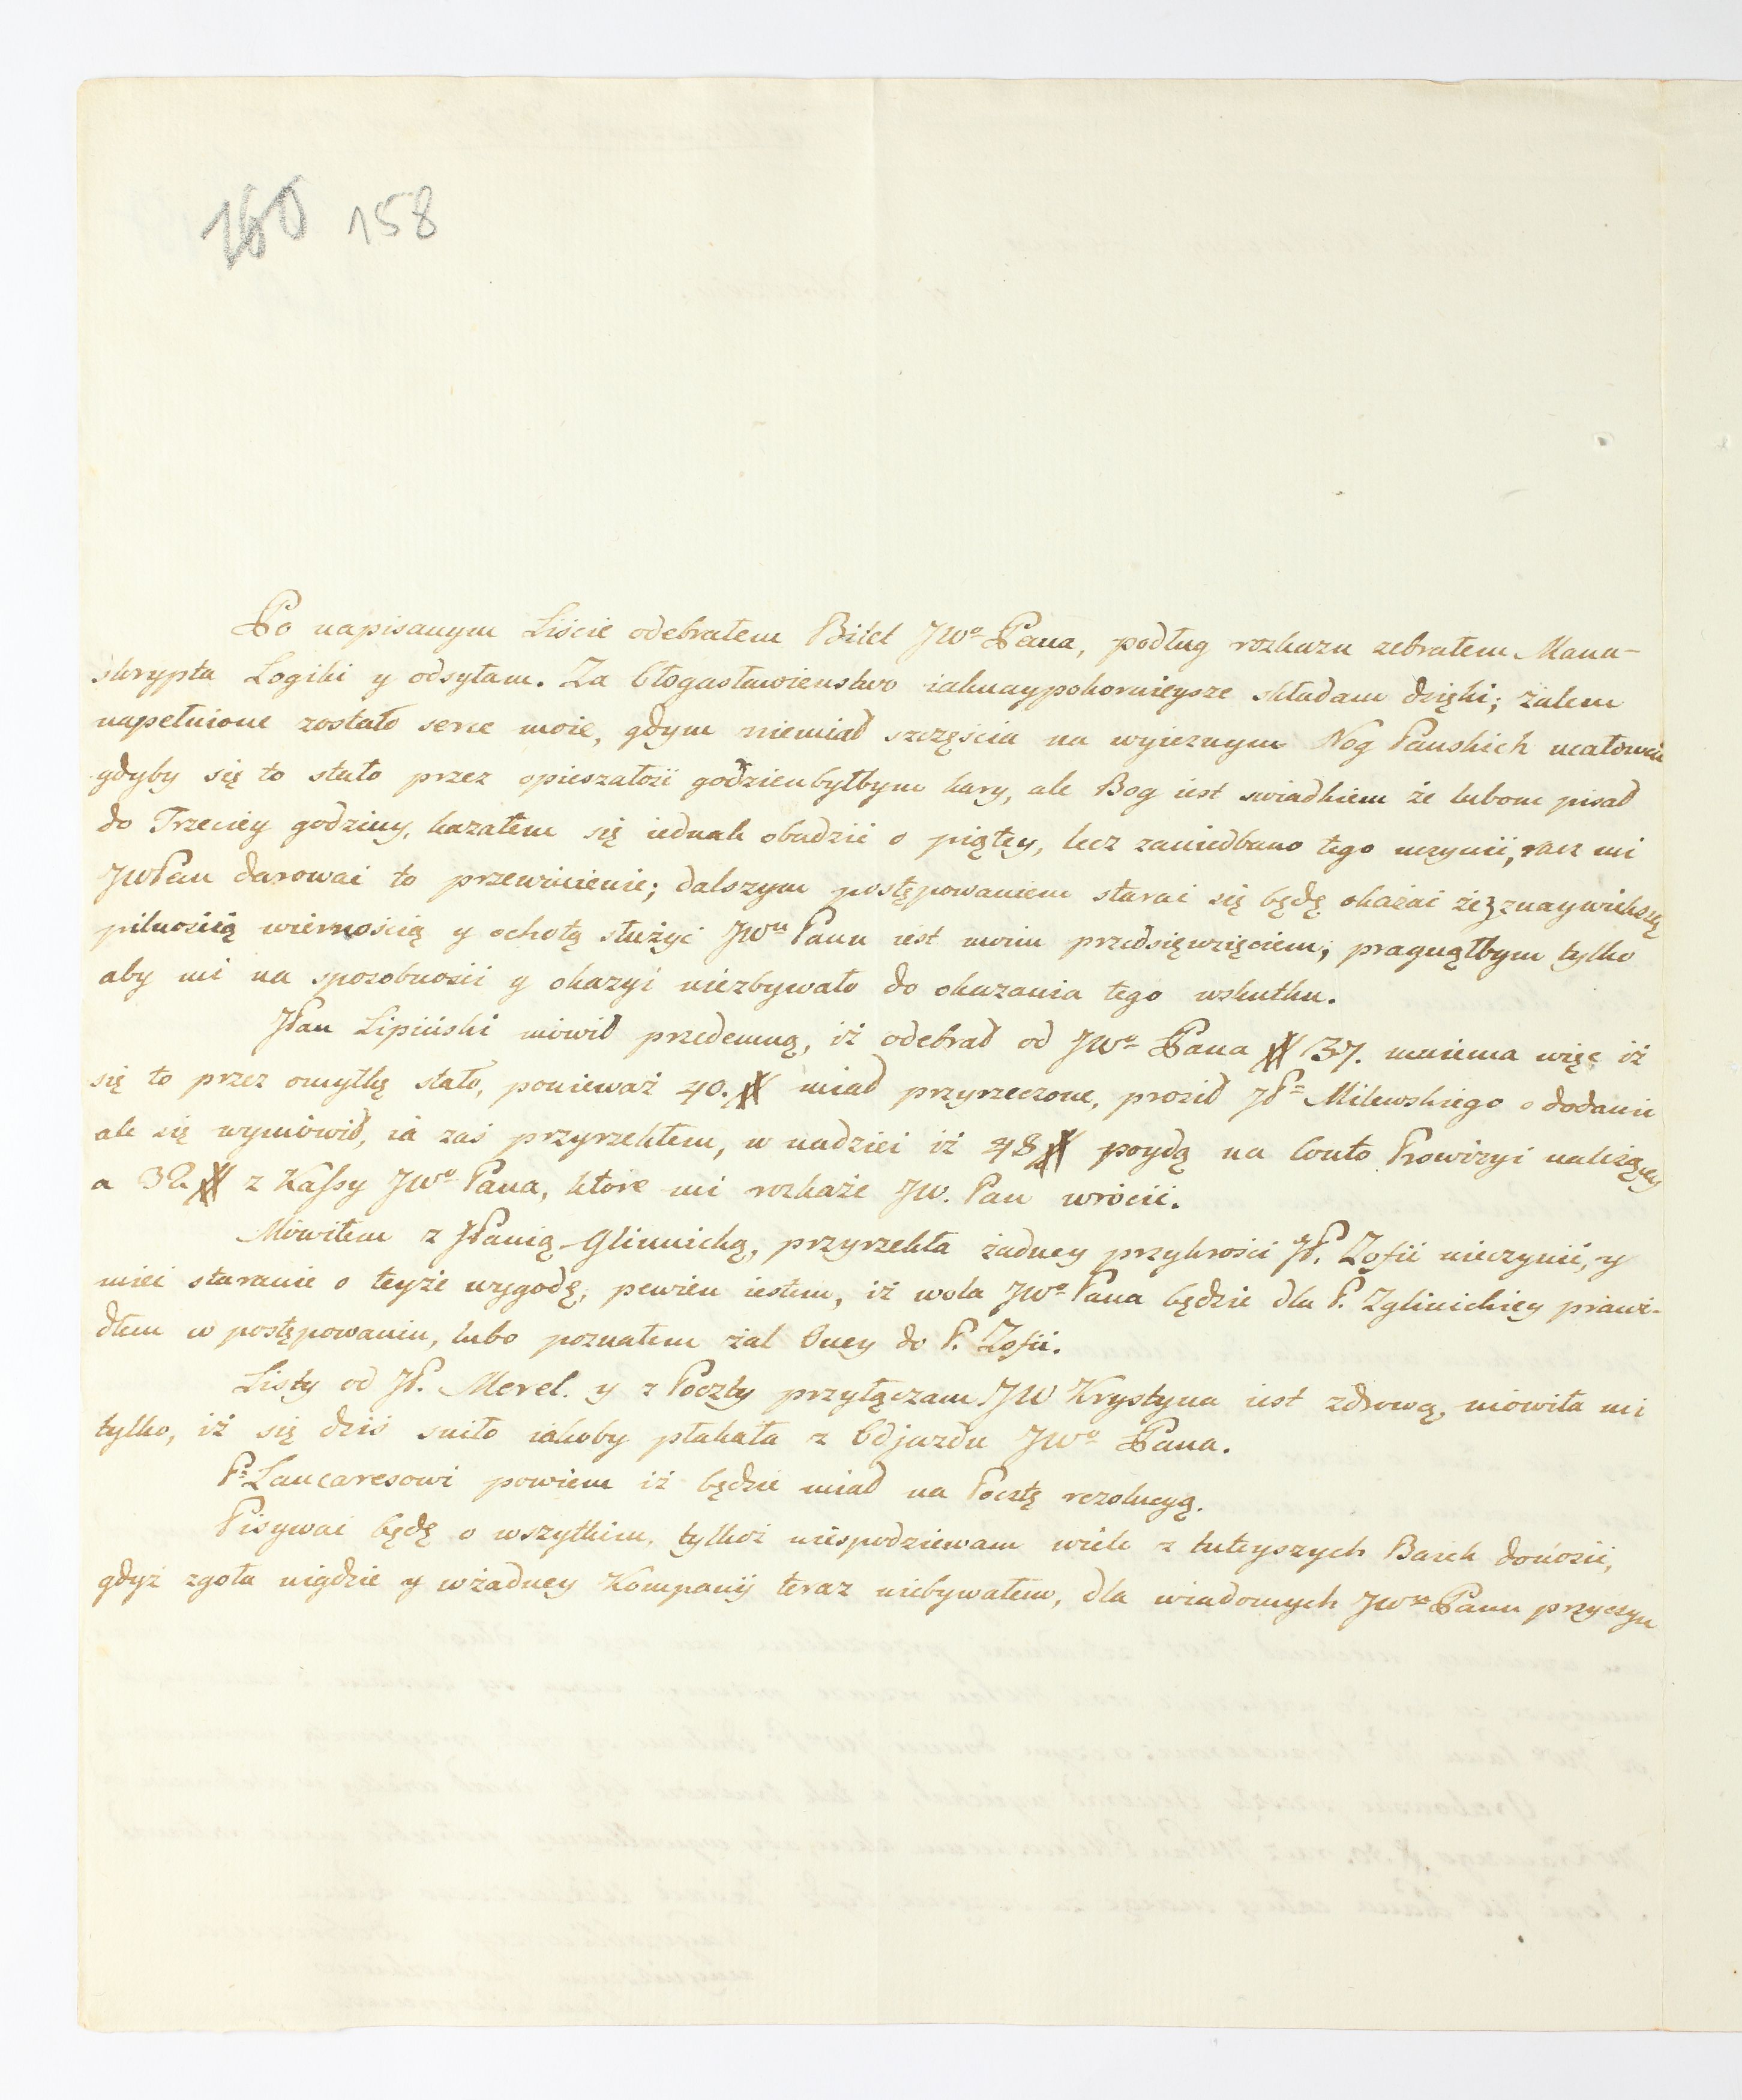 160 158
Po napisanym Liście odebrałem Bilet JWo Pana, podług rozkazu zebrałem Manu-
skrypta Logiki y odsyłam. Za błogasławienstwo iaknaypokornieysze składam dzięki; żalem
napełnione zostało serce moie, gdym niemiał szczęścia na wyieznym Nog Panskich ucałowac
gdyby się to stało przez opieszałość godzienbyłbym kary, ale Bog iest swiadkiem że lubom pisał
do Trzeciey godziny, kazałem się iednak obudzić o piątey, lecz zaniedbano tego uczynić, racz mi
JWPan darować to przewinienie; dalszym postępowaniem starać się będę okazać że z naywiększą
pilnością wiernością y ochotą służyć JWu Panu iest moim przedsięwzięciem; pragnąłbym tylko
aby mi na sposobności y okazyi niezbywało do okazania tego wskutku.
JPan Lipiński mówił przedemną, iż odebrał od JWo Pana # 37. mniema więc iż
się to przez omyłkę stało, ponieważ 40. # miał przyrzeczone, prosił JPa Milewskiego o dodanie
ale się wymówił, ia zaś przyrzekłem, w nadziei iż 48 # poydą na Conto Prowizyi należącey
a 32 # z Kassy JWo Pana, które mi rozkaże JW. Pan wrócić.
Mówiłem z JPanią Glinnicką, przyrzekła żadney przykrości JP. Zofii nieczynić, y
mieć staranie o teyże wygodę, pewien iestem, iż wola JWo Pana będzie dla P. Zglinickiey prawi-
dłem w postępowaniu, lubo poznałem żal Oney do P. Zofii.
Listy od JP. Merel. y z Poczty przyłączam JW Krystyna iest zdrową, mówiła mi
tylko, iż się dziś sniło iakoby płakała z Odjazdu JWo Pana.
Pu Lancaresowi powiem iż będzie miał na Pocztę rezolucyą.
Pisywać będę o wszytkim, tylkoż niespodziewam wiele z tuteyszych Baiek donosić,
gdyż zgoła nigdzie y wżadney Kompanij teraz niebywałem, dla wiadomych JWu Panu przyczyn